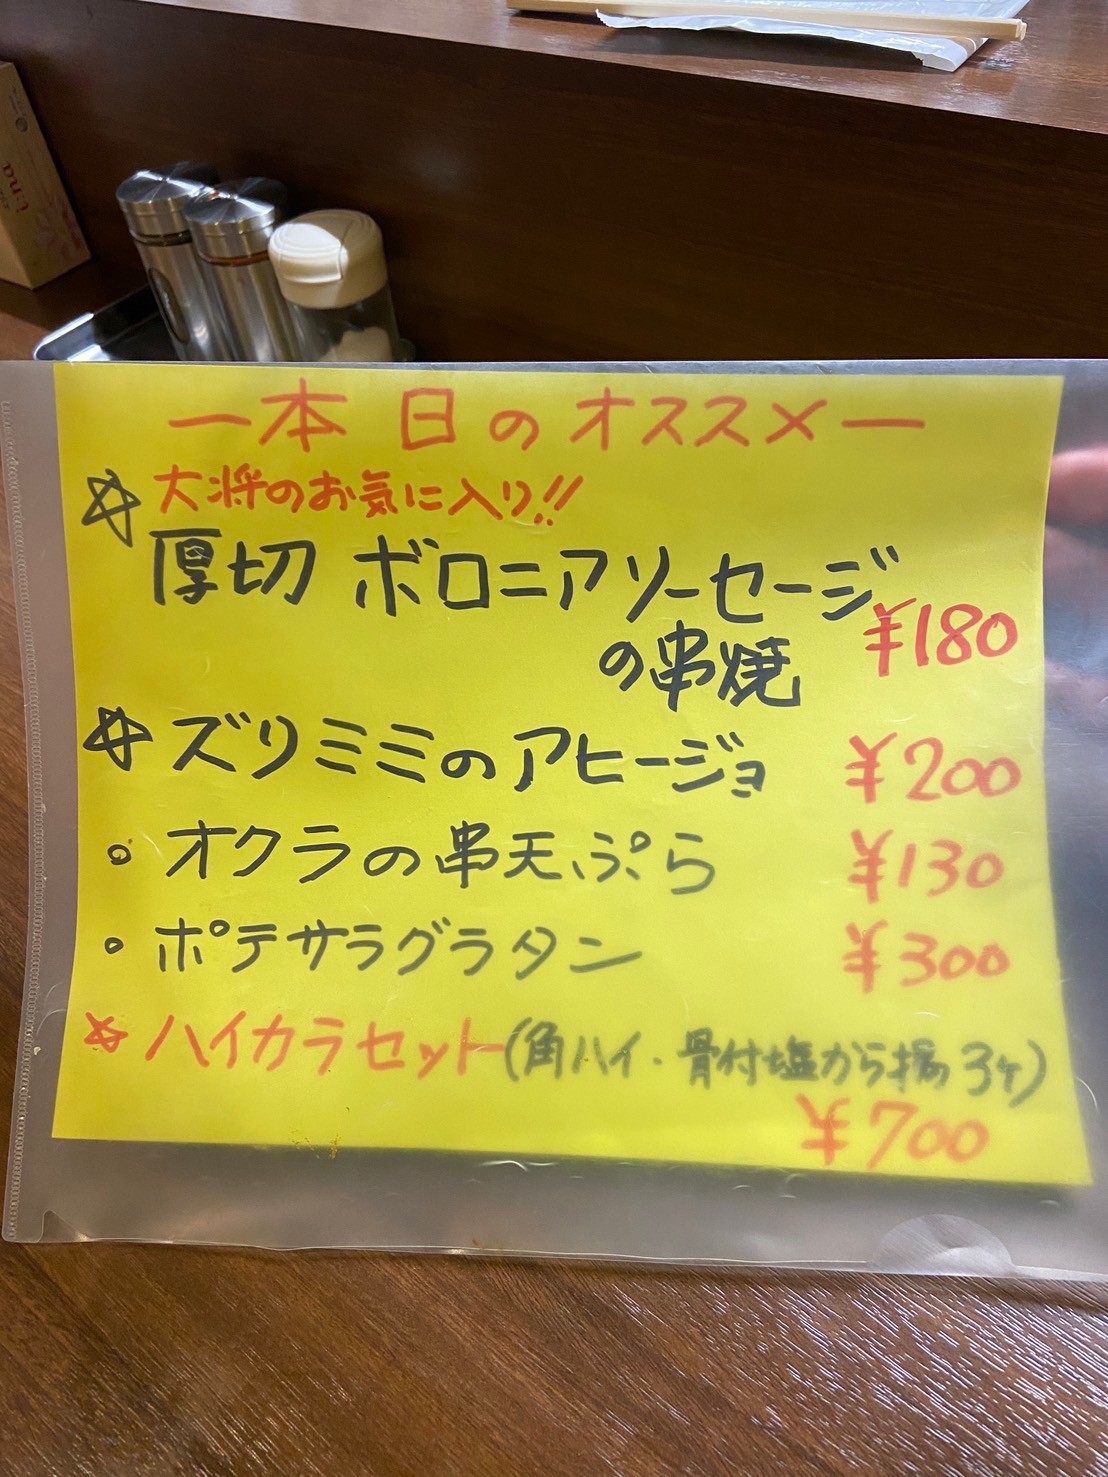 ー本日のオススメー
☆大将のお気に入り!!
厚切 ボロニアソーセージ
の串焼 ¥180
☆ズリミミのアヒージョ ¥200
○オクラの串天ぷら ¥130
○ポテサラグラタン ¥300
☆ハイカラセット(角ハイ・骨付塩から揚3ケ)
¥700